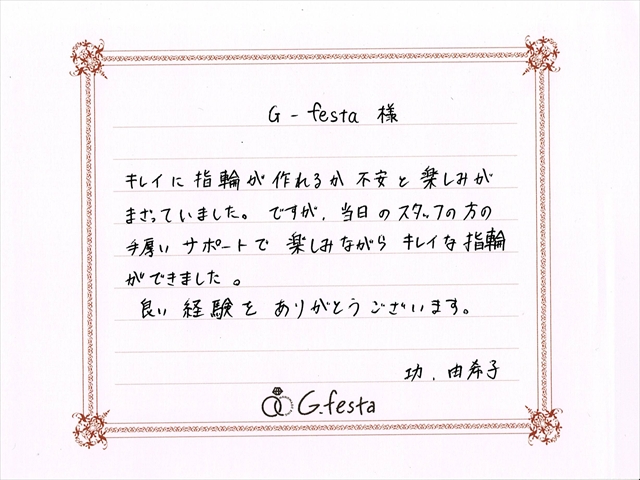 G-festa 様
キレイに 指輪が 作れるか 不安と 楽しみが
まざっていました。ですが、当日のスタッフの方の
手厚い サポートで 楽しみながら キレイな指輪
ができました。
良い 経験を ありがとうございます。
功、由希子
G.festa